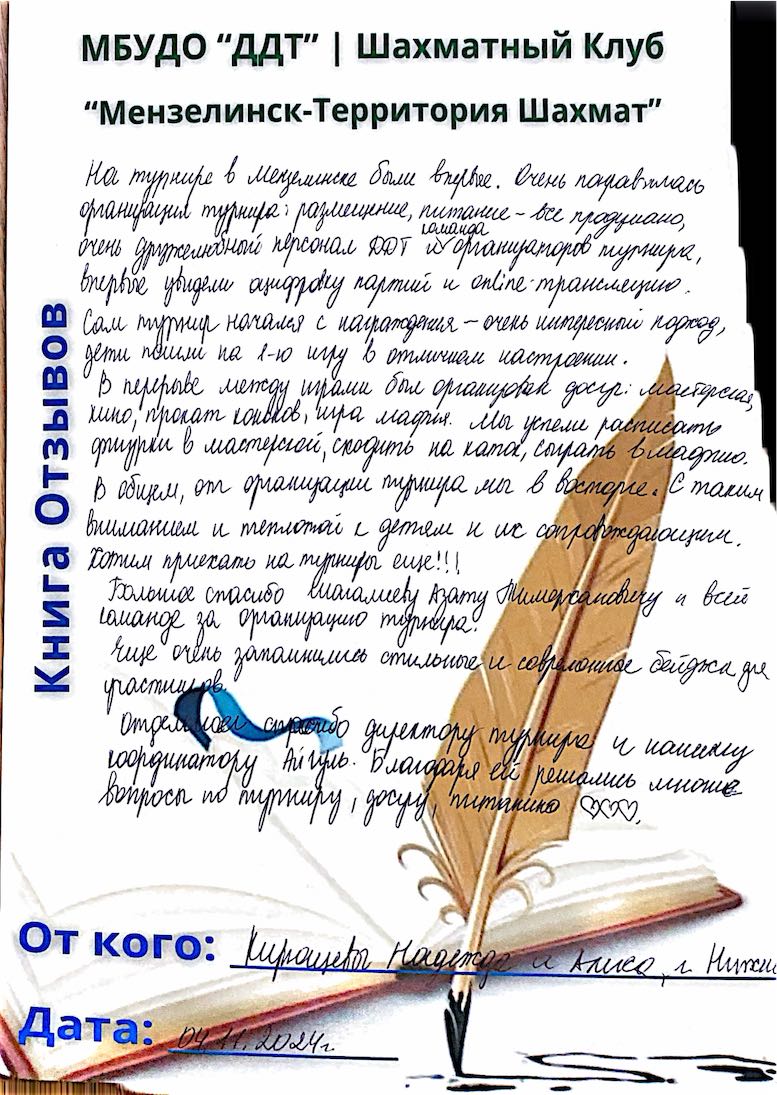 МБУДО “ДДТ” | Шахматный Клуб
“Мензелинск-Территория Шахмат”
Книга Отзывов
На турнире в Мензелинске были впервые. Очень понравилась
организация турнира: размещение, питание – все продумано,
очень дружелюбный персонал ДДТ и команда организаторов турнира,
впервые увидели оцифровку партий и online-трансляцию.
Сам турнир начался с награждения – очень интересный подход,
дети пошли на 1-ю игру в отличном настроении.
В перерыве между играми был организован досуг: мастерская,
кино, прокат коньков, игра мафия. Мы успели расписать
фигурки в мастерской, сходить на каток, сыграть в мафию.
В общем, от организации турнира мы в восторге. С таким
вниманием и теплотой к детям и их сопровождающим.
Хотим приехать на турниры еще!!!
Большое спасибо Шагалиеву Азату и всей
команде за организацию турнира.
Еще очень запомнились стильные и современные бейджи для
участников.
Отдельное спасибо директору турнира и нашему
координатору Айгуль. Благодаря ей решались многие
вопросы по турниру, досугу, питанию ♡♡♡.
От кого: Надежда и Алиса, г. Нижн
Дата: 04.11.2024г.